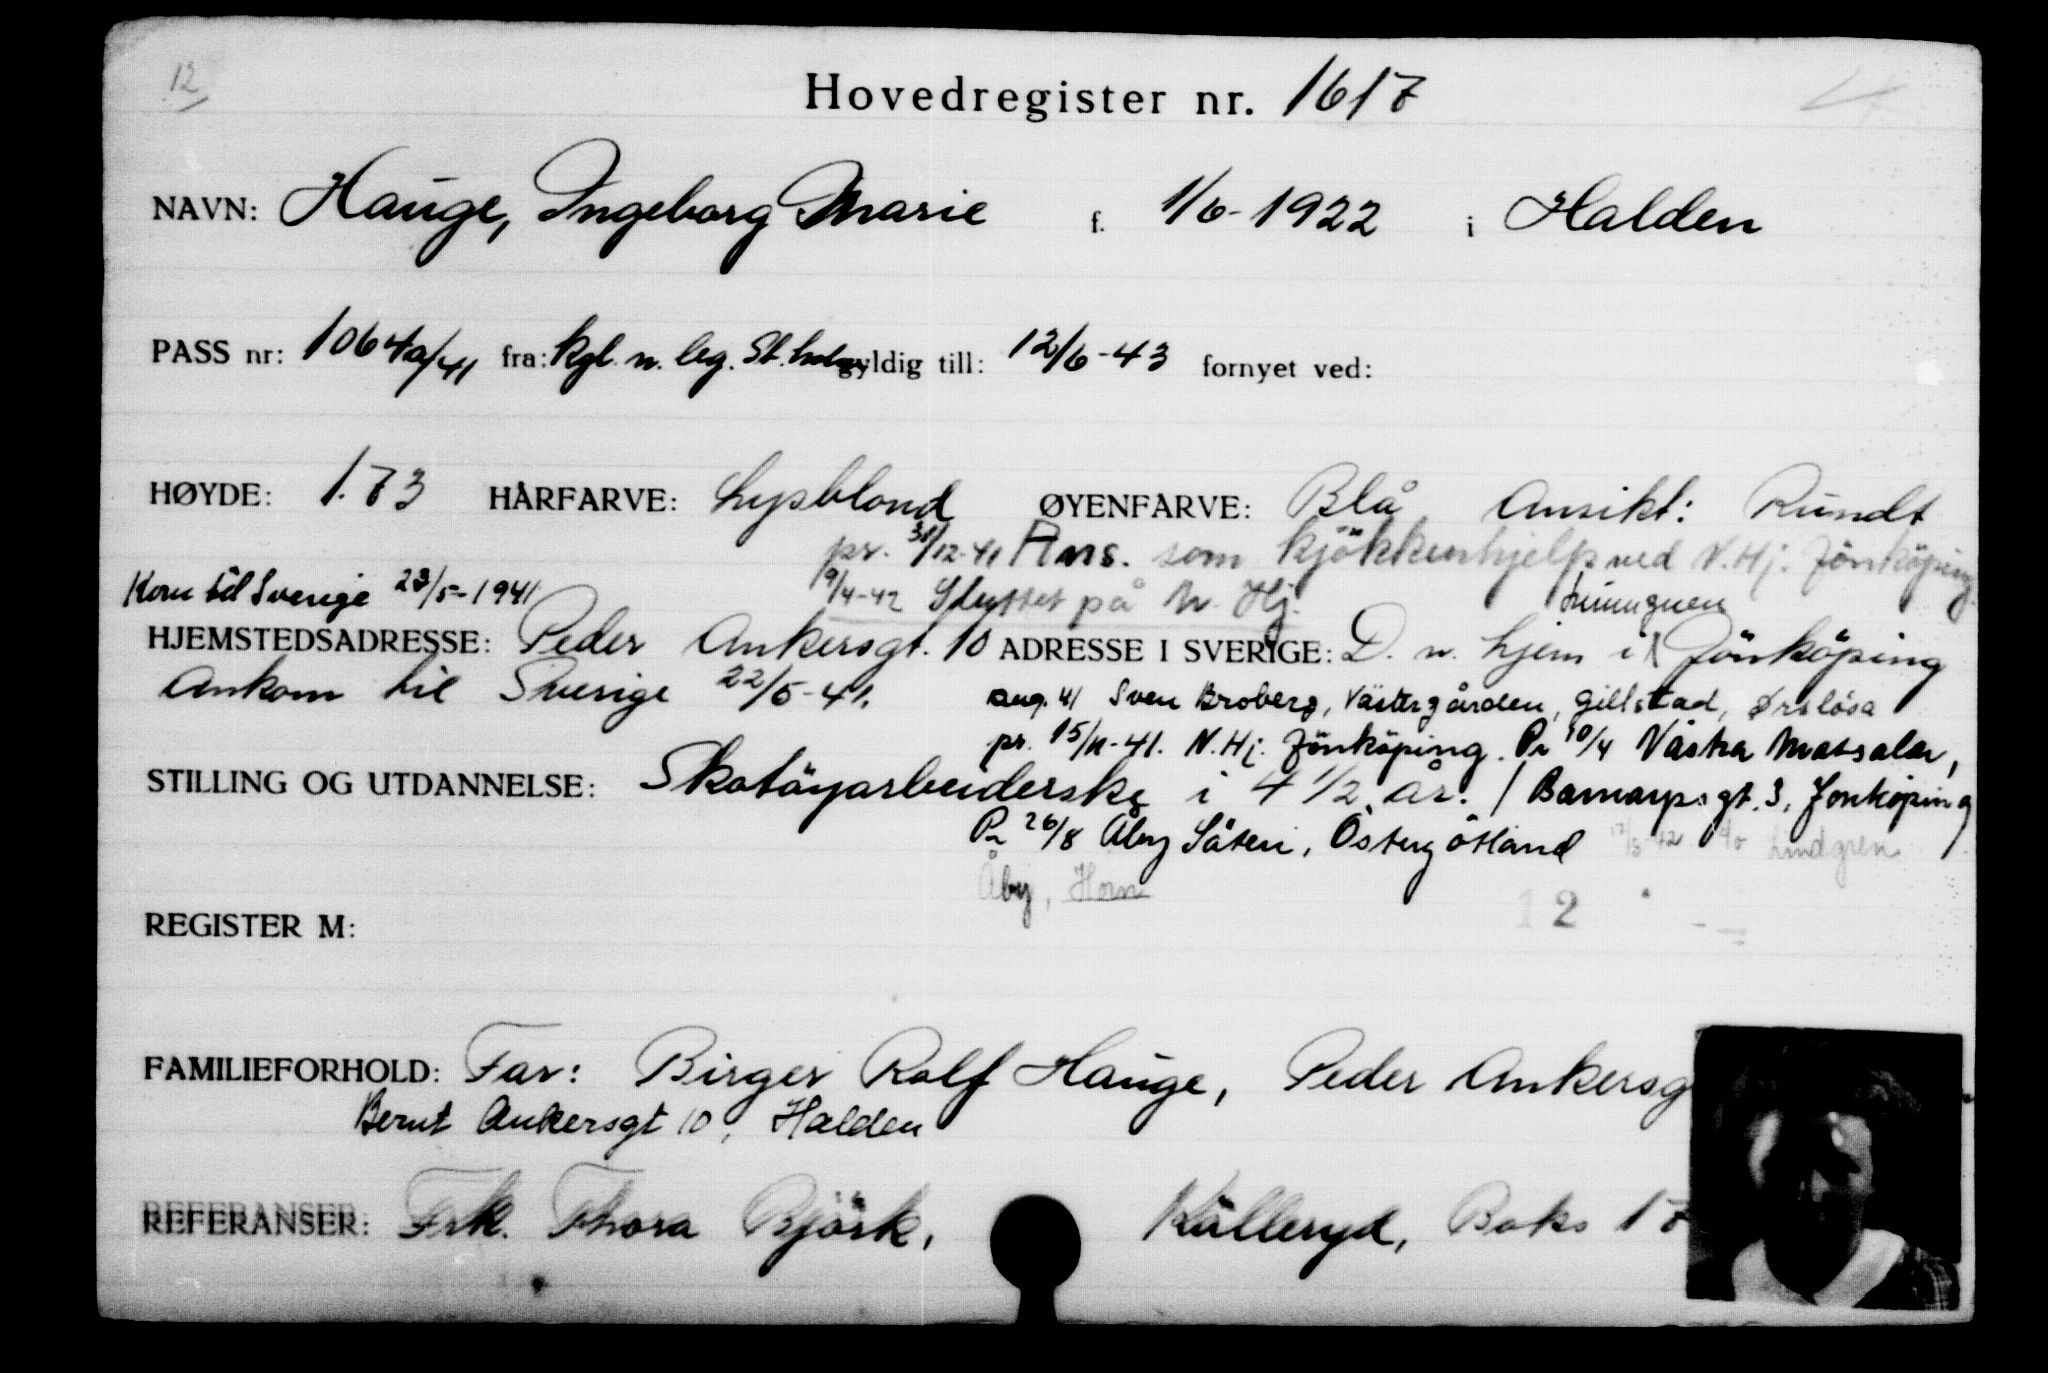 12
Hovedregister nr. 1617
NAVN: Hauge, Ingeborg Marie f. 1/6-1922 i Halden
PASS nr: 1064a/41 fra: Kgl. n. leg. St.holm gyldig till: 12/6-43 fornyet ved:
HØYDE: 1.73 HÅRFARVE: Lysblond ØYENFARVE: Blå Ansikt: Rundt
pr. 31/12-41 Ans. som kjökkenhjelp ved N.Hj. Jönköping
Kom til Sverige 23/5-1941
9/4-42 Sluttet på N. Hj.
HJEMSTEDSADRESSE: Peder Ankersgt. 10 ADRESSE I SVERIGE: D. n. hjem i Jönköping
Ankom til Sverige 22/5-41.
aug. 41 Sven Broberg, Västergården, Gillstad, Örslösa
pr. 15/11-41. N.Hj. Jönköping. Pr 10/4 Västra Matsalar,
STILLING OG UTDANNELSE: Skotöyarbeiderske i 4 1/2 år. / Barnarpsgt. 3, Jönköping
Pr 26/8 Åby Säteri, Östergötland 17/8-42 c/o Lindgren
Åby, Horn
12
REGISTER M:
FAMILIEFORHOLD: Far: Birger Rolf Hauge, Peder Ankersg
Bernt Ankersgt 10, Halden
REFERANSER: Frk. Thora Björk, Källeryd, Boks 17